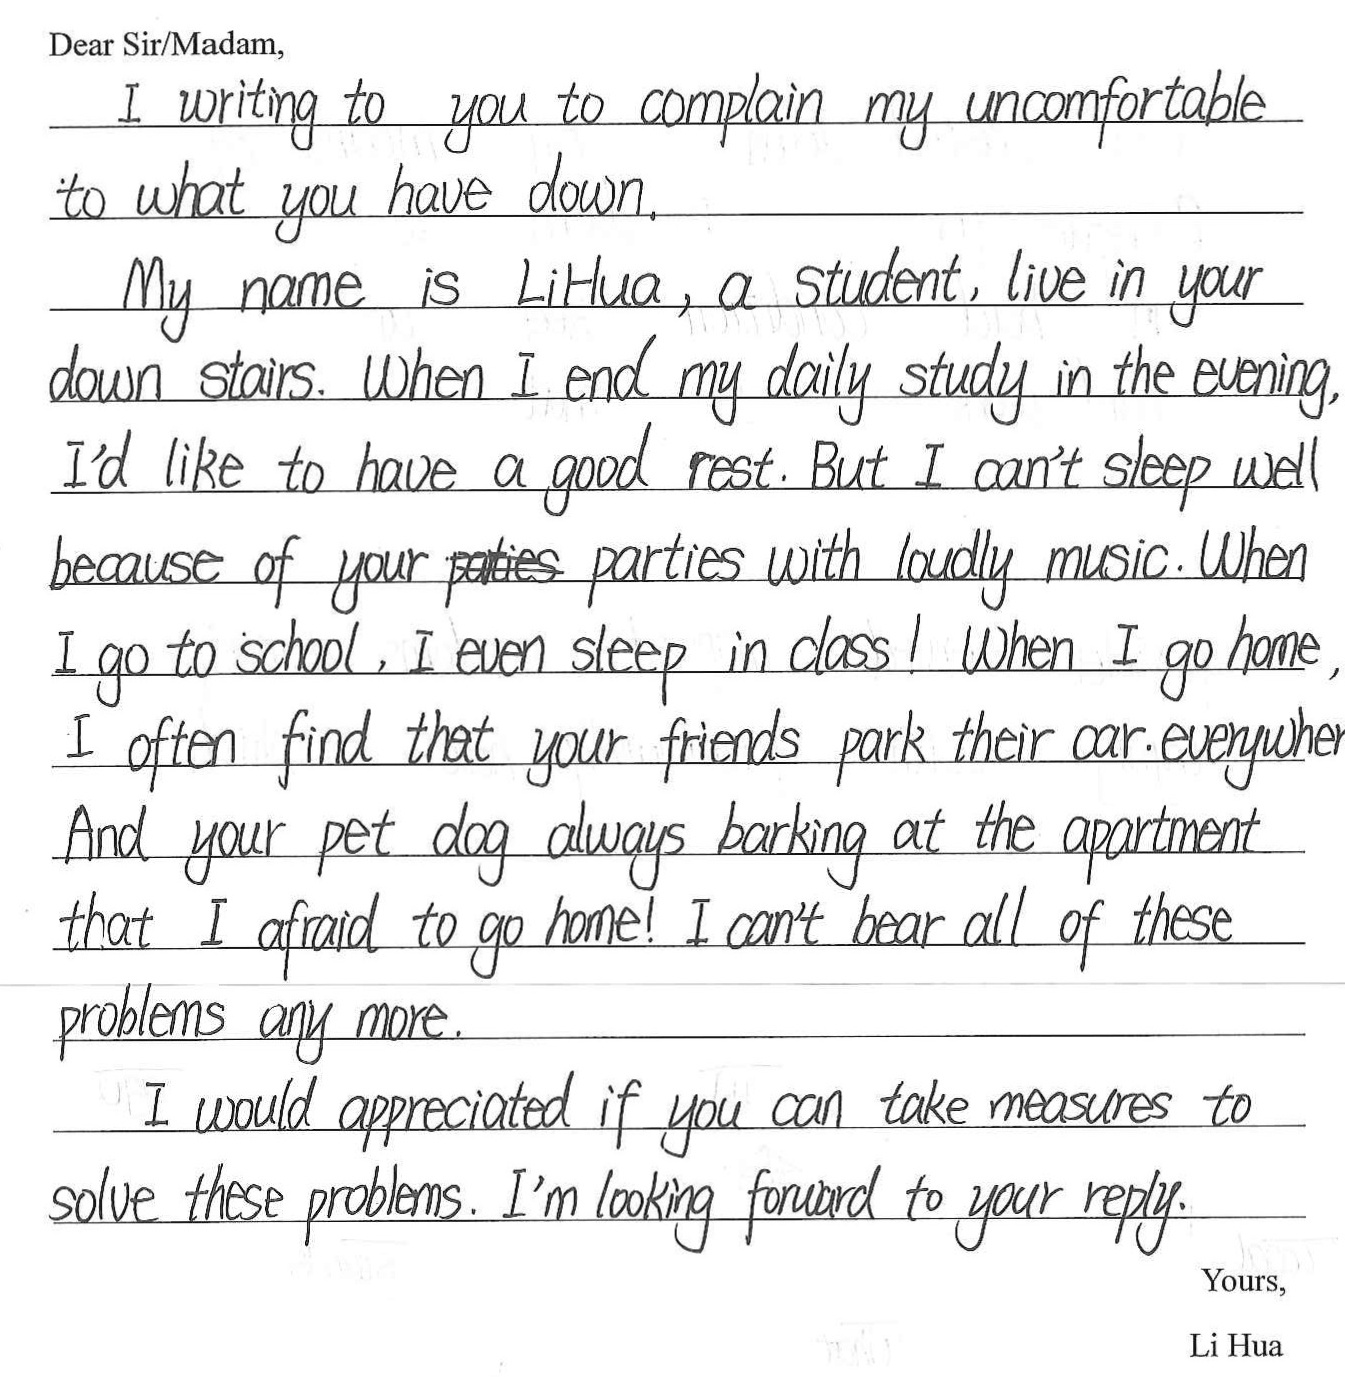 Dear Sir/Madam,
I writing to you to complain my uncomfortable
to what you have down.
My name is LiHua, a student, live in your
down stairs. When I end my daily study in the evening,
I'd like to have a good rest. But I can't sleep well
because of your paties parties with loudly music. When
I go to school, I even sleep in class! When I go home,
I often find that your friends park their car. everywher
And your pet dog always barking at the apartment
that I afraid to go home! I can't bear all of these
problems any more.
I would appreciated if you can take measures to
solve these problems. I'm looking forward to your reply.
Yours,
Li Hua